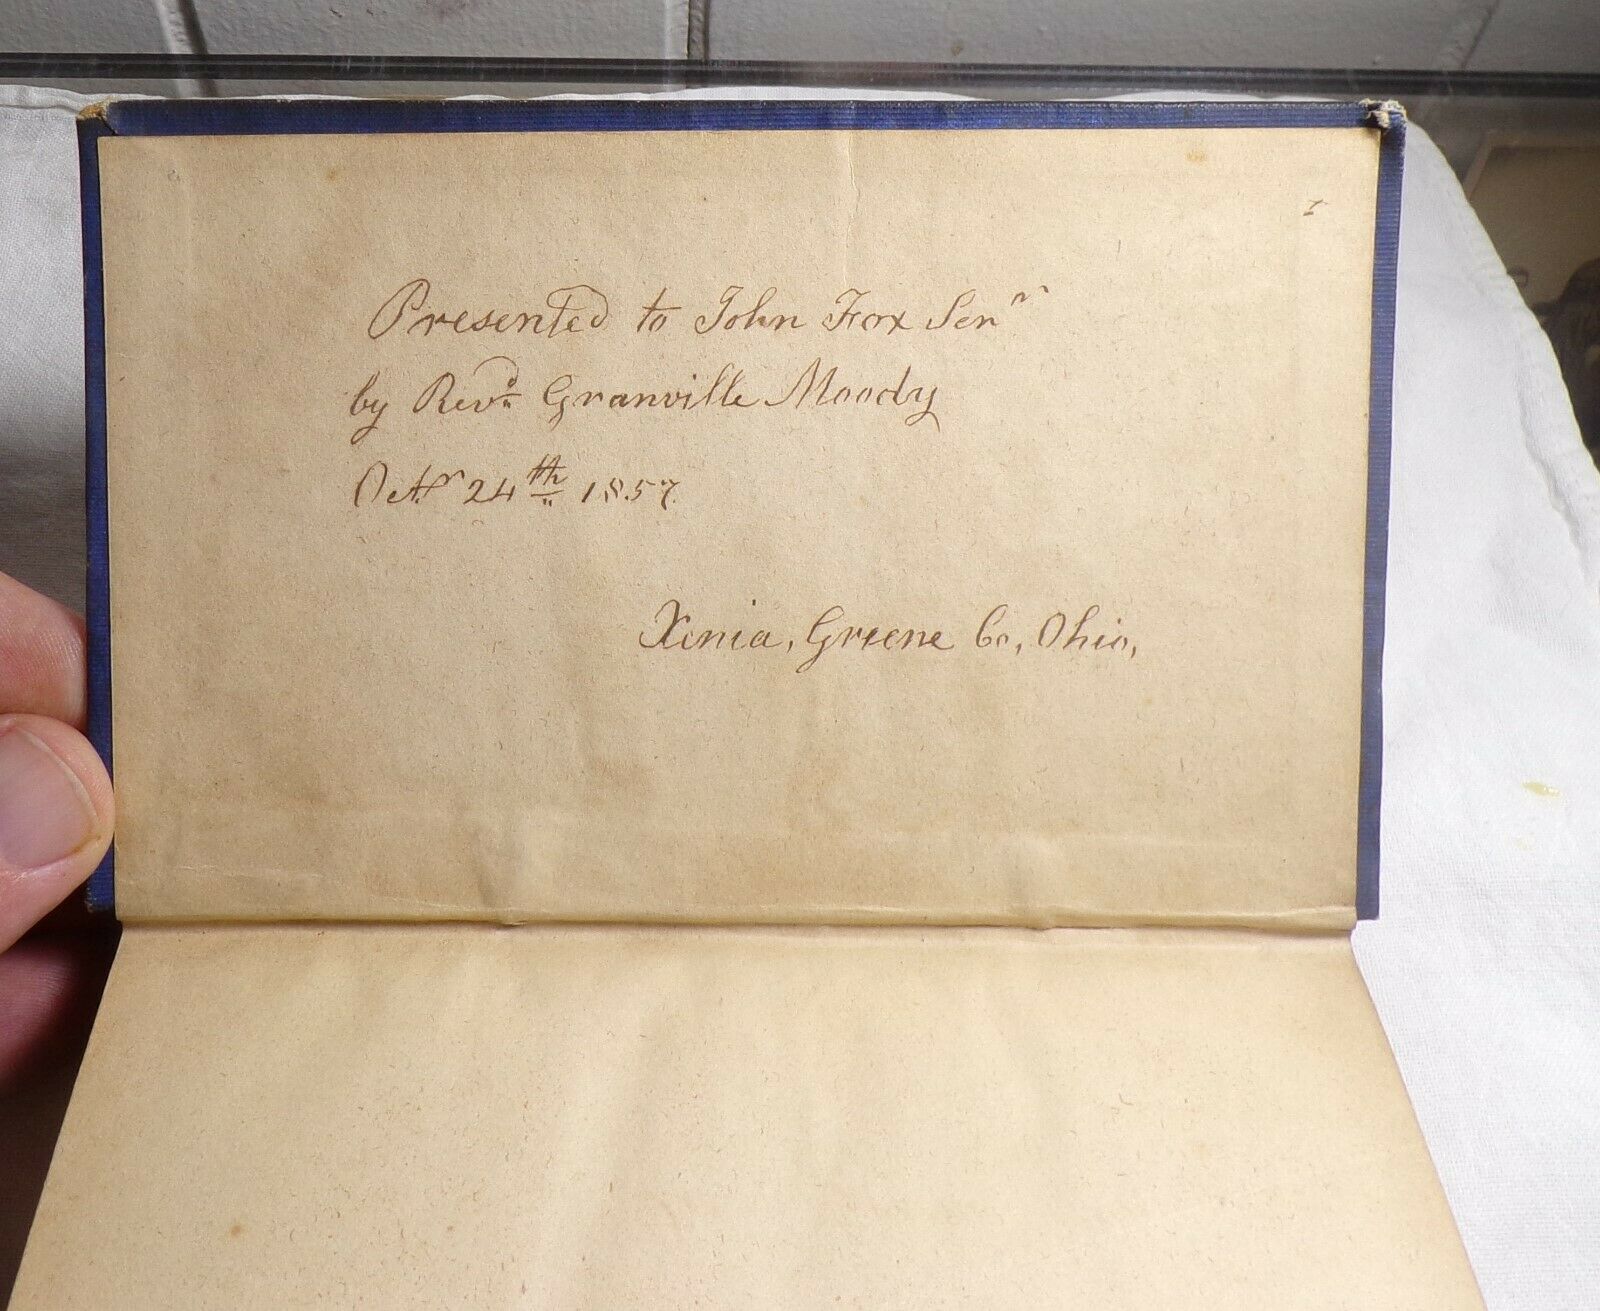 Presented to John Fox Senr
by Revd Granville Moody
Octr 24th 1857.
Xenia, Greene Co, Ohio,